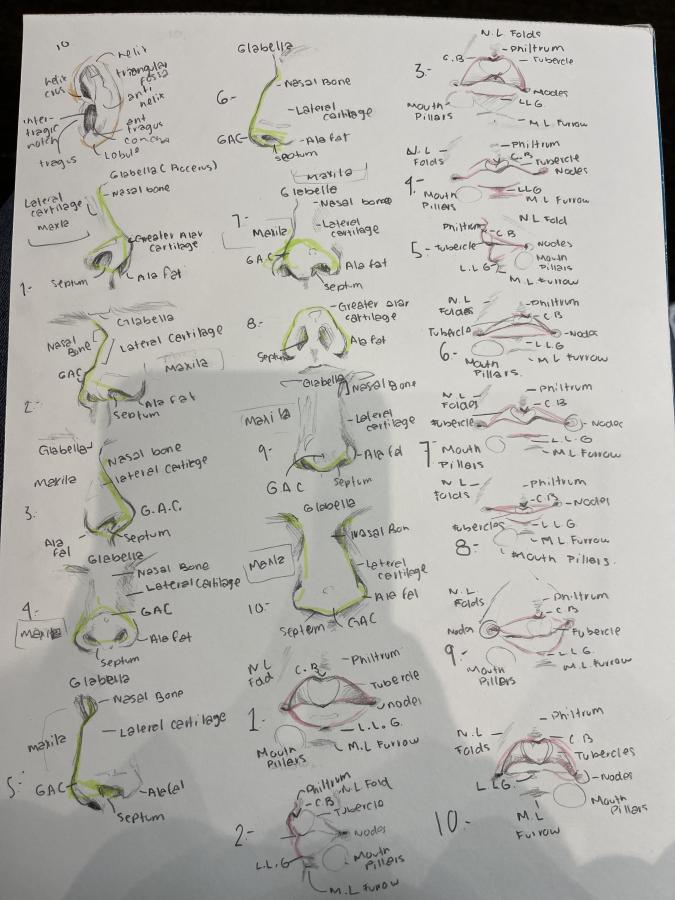 10
helix
triangular
fossa
helix
crus
anti
helix
inter-
tragic
notch
ant
tragus
concha
tragus
Lobule
Glabella (Procerus)
Nasal bone
Lateral
cartilage
Maxila
Greater Alar
cartilage
1-
Septum
Ala fat
Glabella
Nasal
Bone
Lateral Cartilage
GAC
Maxila
2-
Ala Fat
Septum
Glabella
Nasal bone
lateral cartilege
maxila
3.
G.A.C.
Ala
fat
Septum
Glabella
Nasal Bone
Lateral Cartilage
4-
GAC
Maxila
Ala fat
Septum
Glabella
Nasal Bone
Lateral cartilage
maxila
5-
GAC
Ala fat
Septum
Glabella
6-
Nasal Bone
Lateral
cartilage
GAC
Ala fat
Septum
Maxila
Glabella
Nasal bone
7-
Maxila
Lateral
cartilage
GAC
Ala fat
Septum
8-
Greater alar
cartilage
Septum
Ala fat
Glabella
Nasal Bone
Maxila
Lateral
cartilage
9-
Ala fat
GAC
Septum
Glabella
Nasal Bon
Maxila
Lateral
cartilage
10-
Ala fat
Septum
GAC
N L
Fold
C.B
Philtrum
Tubercle
1-
nodes
L.L.G.
Mouth
Pillers
M.L Furrow
Philtrum
N.L Fold
C.B
Tubercle
2-
Nodes
L.L.G
Mouth
Pillers
M.L Furow
N.L. Folds
Philtrum
C.B
Tubercle
3-
Nodes
Mouth
Pillars
L.L.G.
M.L Furrow
N.L
Folds
Philtrum
C.B
Tubercle
Nodes
4-
Mouth
Pillers
LLG
M L Furrow
Philtrum
N L Fold
C.B
5-
Tubercle
Nodes
L.L.G
Mouth
Pillars
M L Furrow
N.L
Folds
Philtrum
C B
Tubercle
Nodes
6-
LLG
Mouth
Pillers.
M L Furrow
N.L
Folds
Philtrum
C B
Tubercle
Nodes
7-
L.L.G
Mouth
Pillers
M L Furrow
N L
Folds
Philtrum
C B
Nodes
tubercles
L L G
8-
M L Furrow
Mouth Pillers.
N.L
Folds
Philtrum
C B
Nods
Tubercle
9-
L L G
Mouth
Pillers
M.L. Furrow
N.L
Folds
Philtrum
C B
Tubercles
Nodes
L.L.G.
Mouth
Pillars
10-
M.L
Furrow